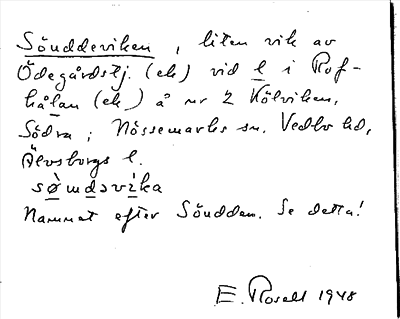 Söuddeviken, liten vik av
Ödegårdstj. (ek) vid l i Rof-
hålan (ek) å nr 2 Kölviken,
Södra; Nössemarks sn. Vedbo hd,
Älvsborgs l.
Namnat efter Söudden. Se detta!
E. Rosell 1948